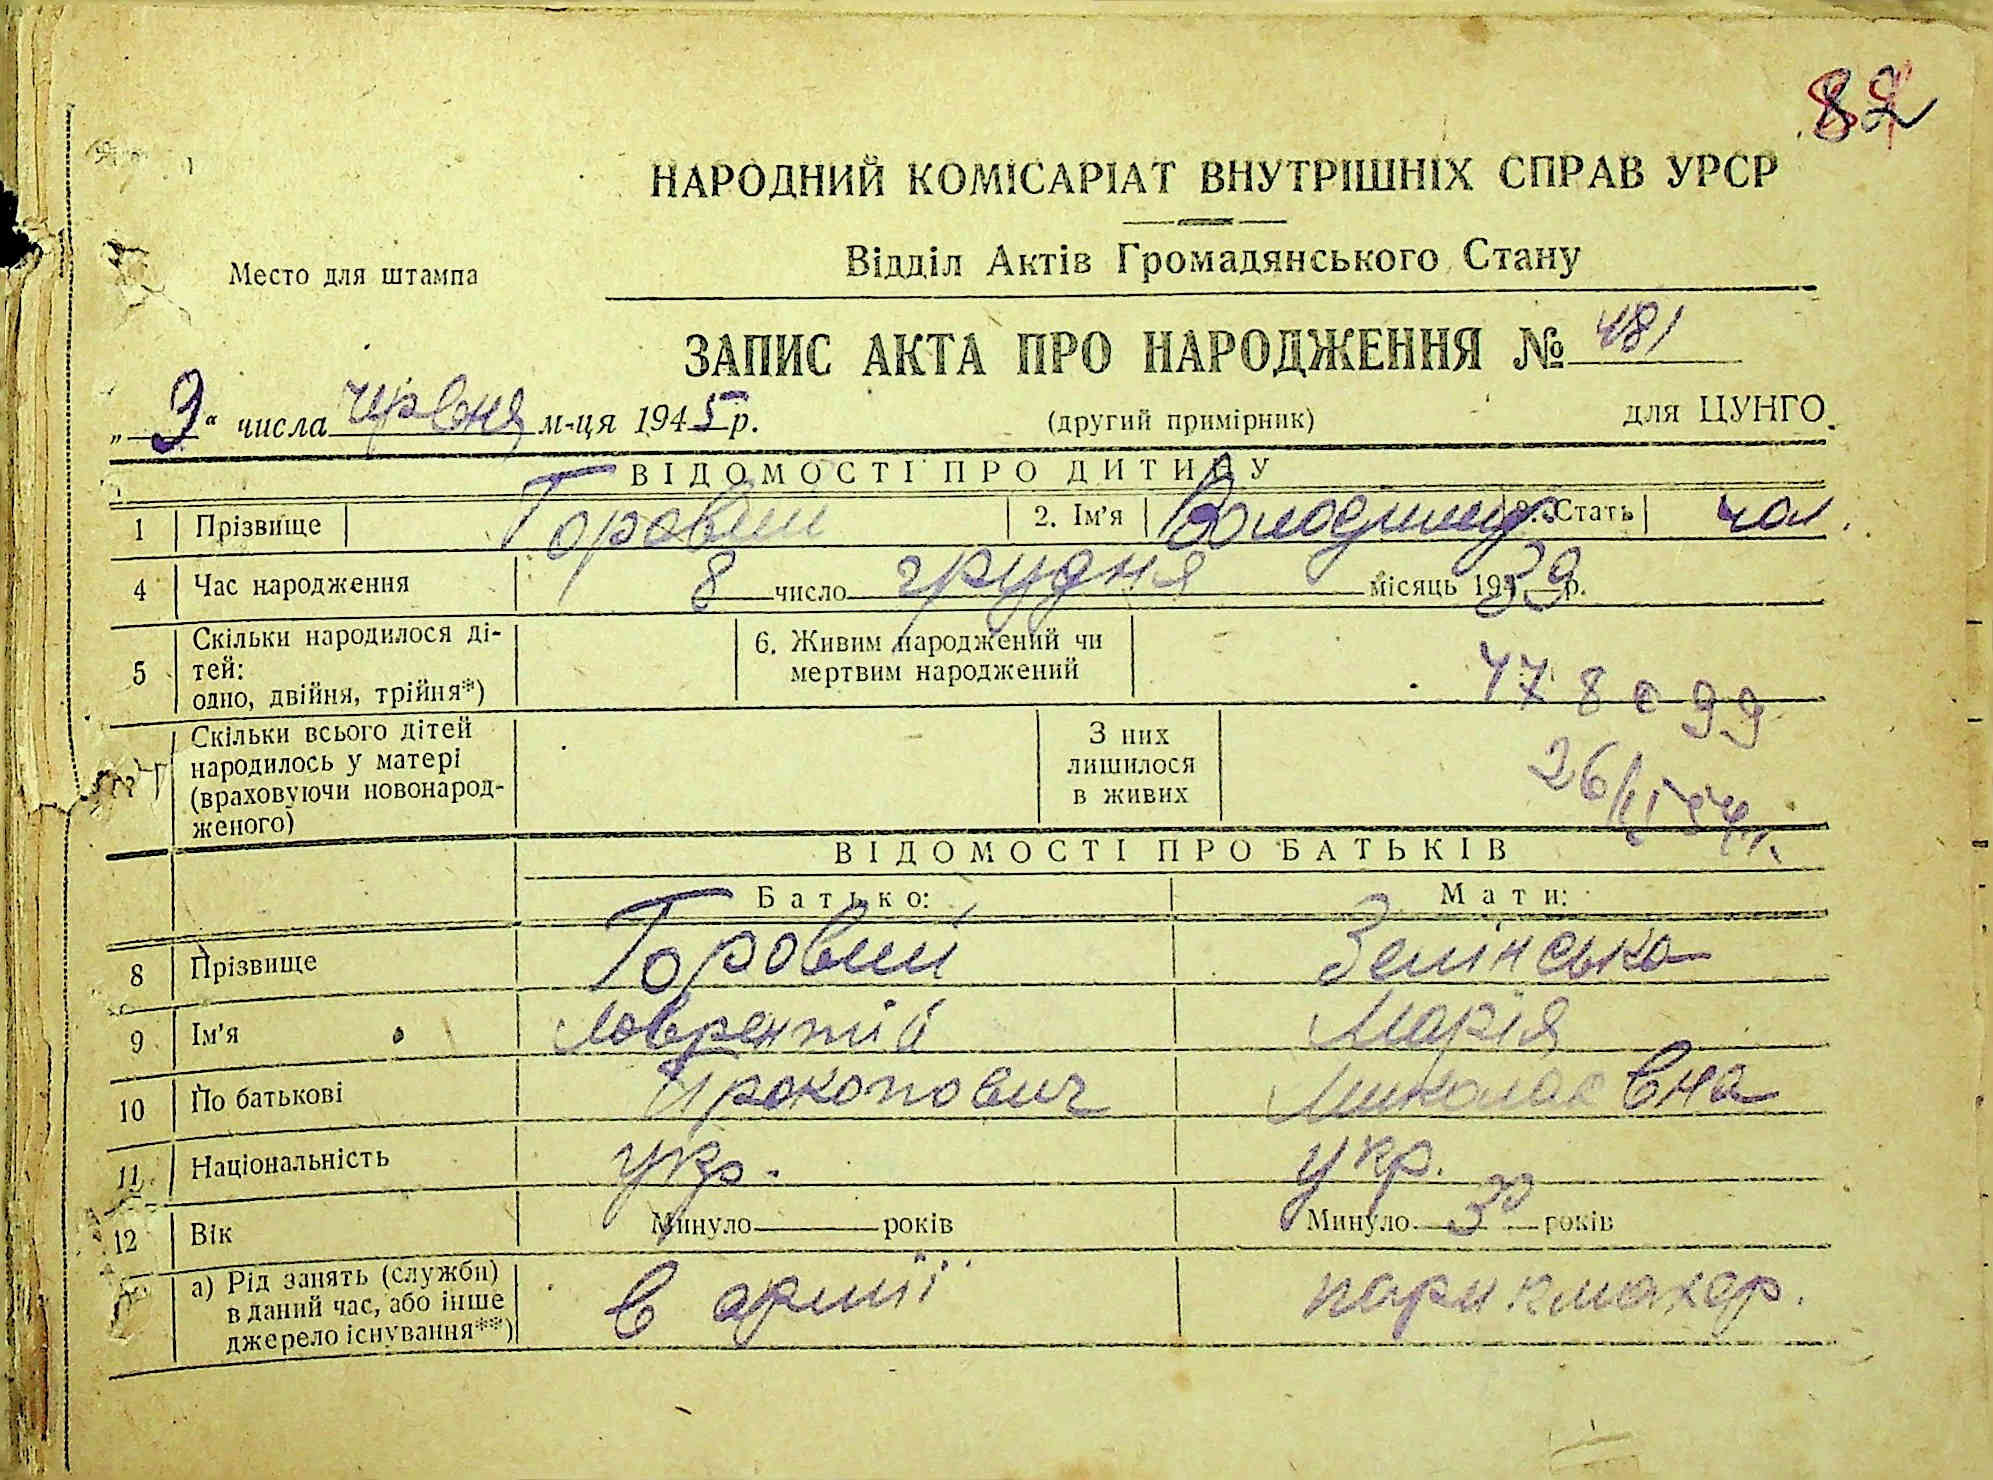 82
НАРОДНИЙ КОМІСАРІАТ ВНУТРІШНІХ СПРАВ УРСР
Відділ Актів Громадянського Стану
Место для штампа
ЗАПИС АКТА ПРО НАРОДЖЕННЯ № 481
„ 9 “ числа червня м-ця 1945 р.
(другий примірник)
для ЦУНГО.
ВІДОМОСТІ ПРО ДИТИНУ
1 Прізвище Горовий 2. Ім’я Володимир 3. Стать чол.
4 Час народження 8 число грудня місяць 1939 р.
5 Скільки народилося ді-
тей:
одно, двійня, трійня*)
6. Живим народжений чи
мертвим народжений
Скільки всього дітей
народилось у матері
(враховуючи новонарод-
женого)
З них
лишилося
в живих
ВІДОМОСТІ ПРО БАТЬКІВ
Батько: Мати:
8 Прізвище Горовий Зелінська
9 Ім’я Лаврентій Марія
10 По батькові Прокопович Миколаєвна
11 Національність укр. укр.
12 Вік Минуло років Минуло 30 років
а) Рід занять (служби)
в даний час, або інше
джерело існування**)
в армії парикмахер.